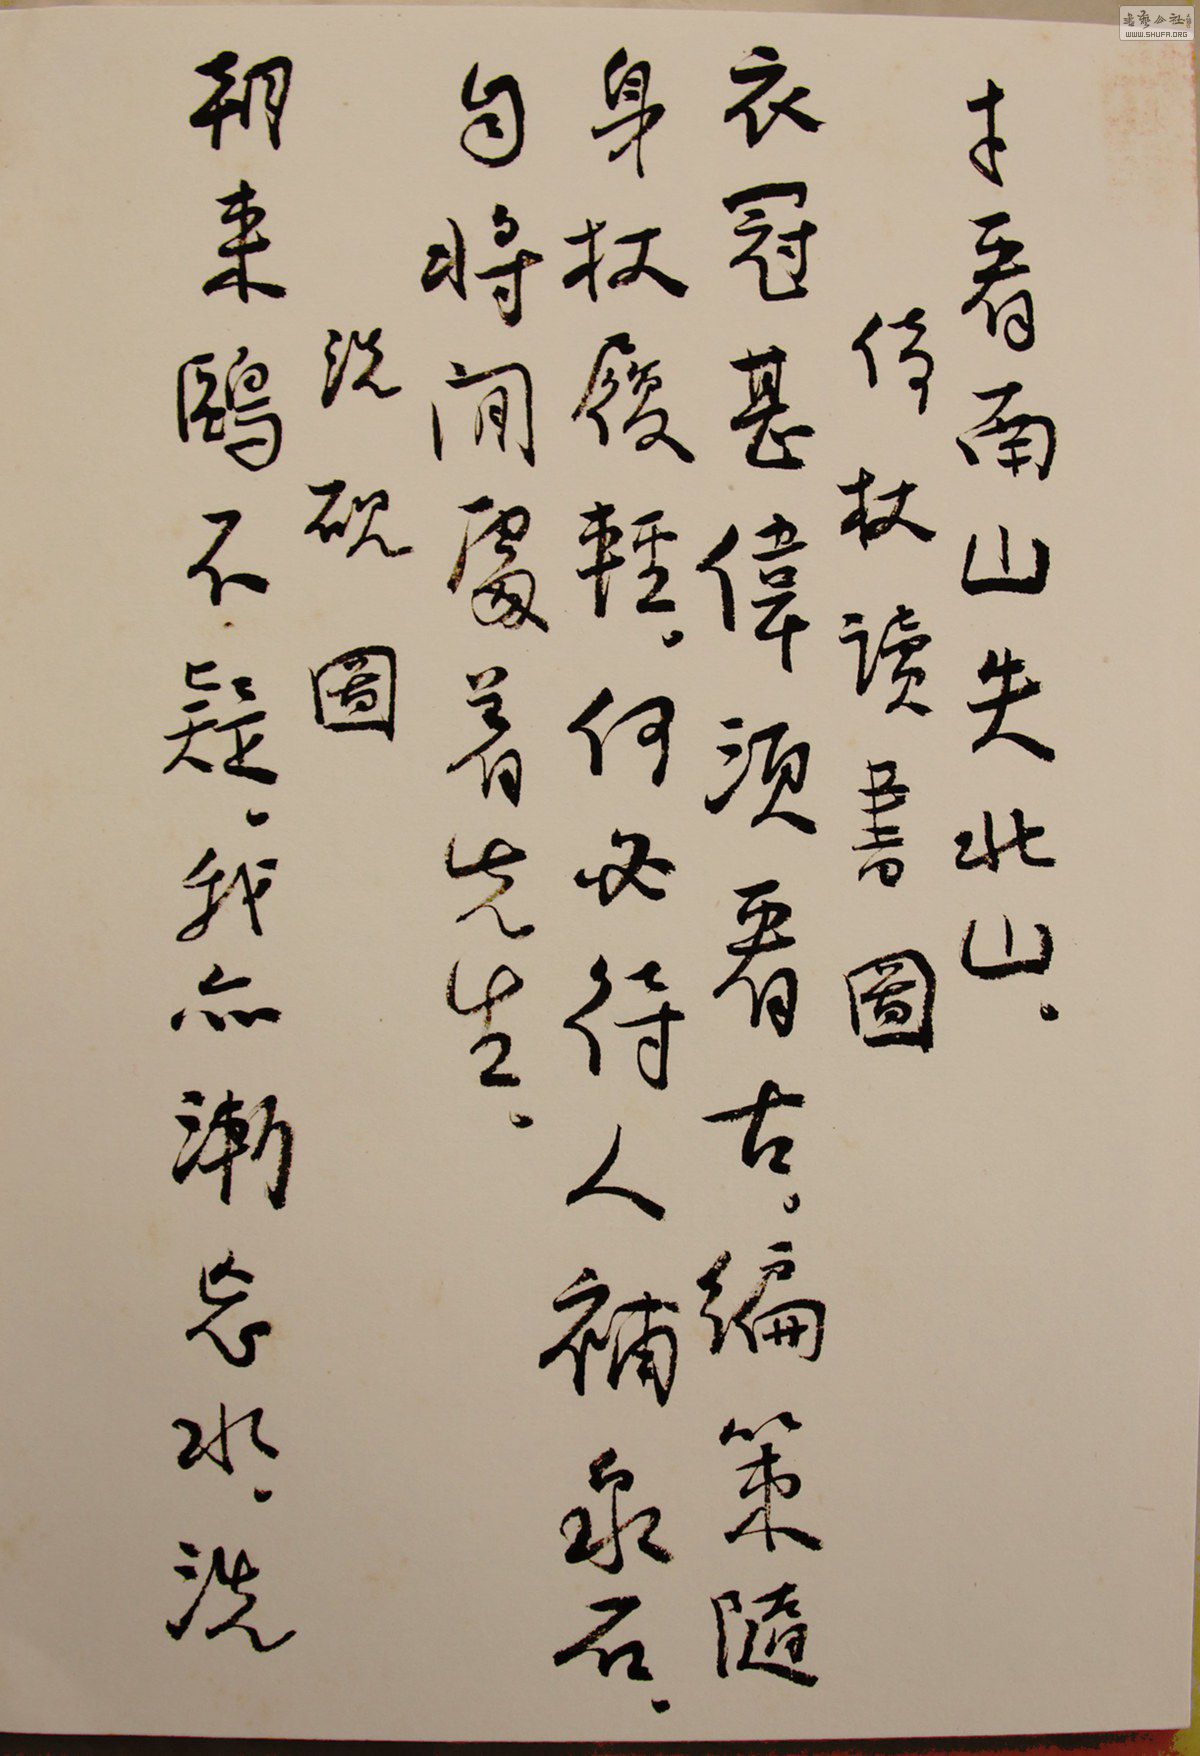 才看南山失北山。
倚杖讀書圖
衣冠甚偉須看古。編策隨
身杖履輕。何必待人補泉石。
自將閒處著先生。
洗硯圖
朝来鷗不疑。我亦漸忘水。洗
书艺公社
WWW.SHUFA.ORG